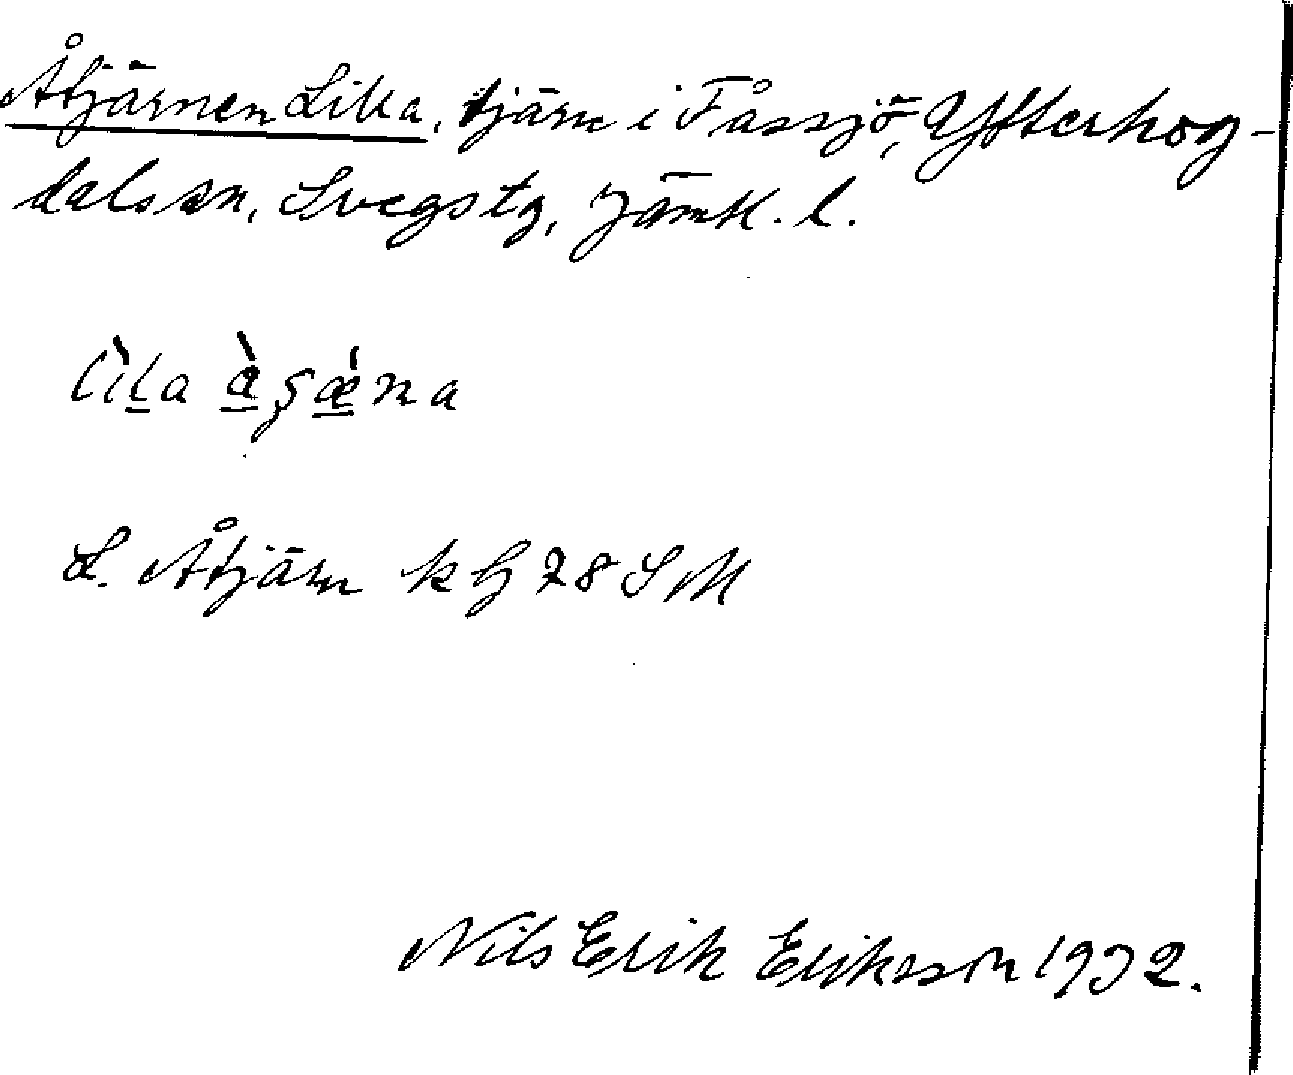 Åtjärnen Lilla, tjärn i Fåssjö, Ytterhog-
dals sn, Svegs tg, Jämtl. l.
lìla àşǽna
L. Åtjärn k G 28 S M
Nils Erik Eriksson 1932.